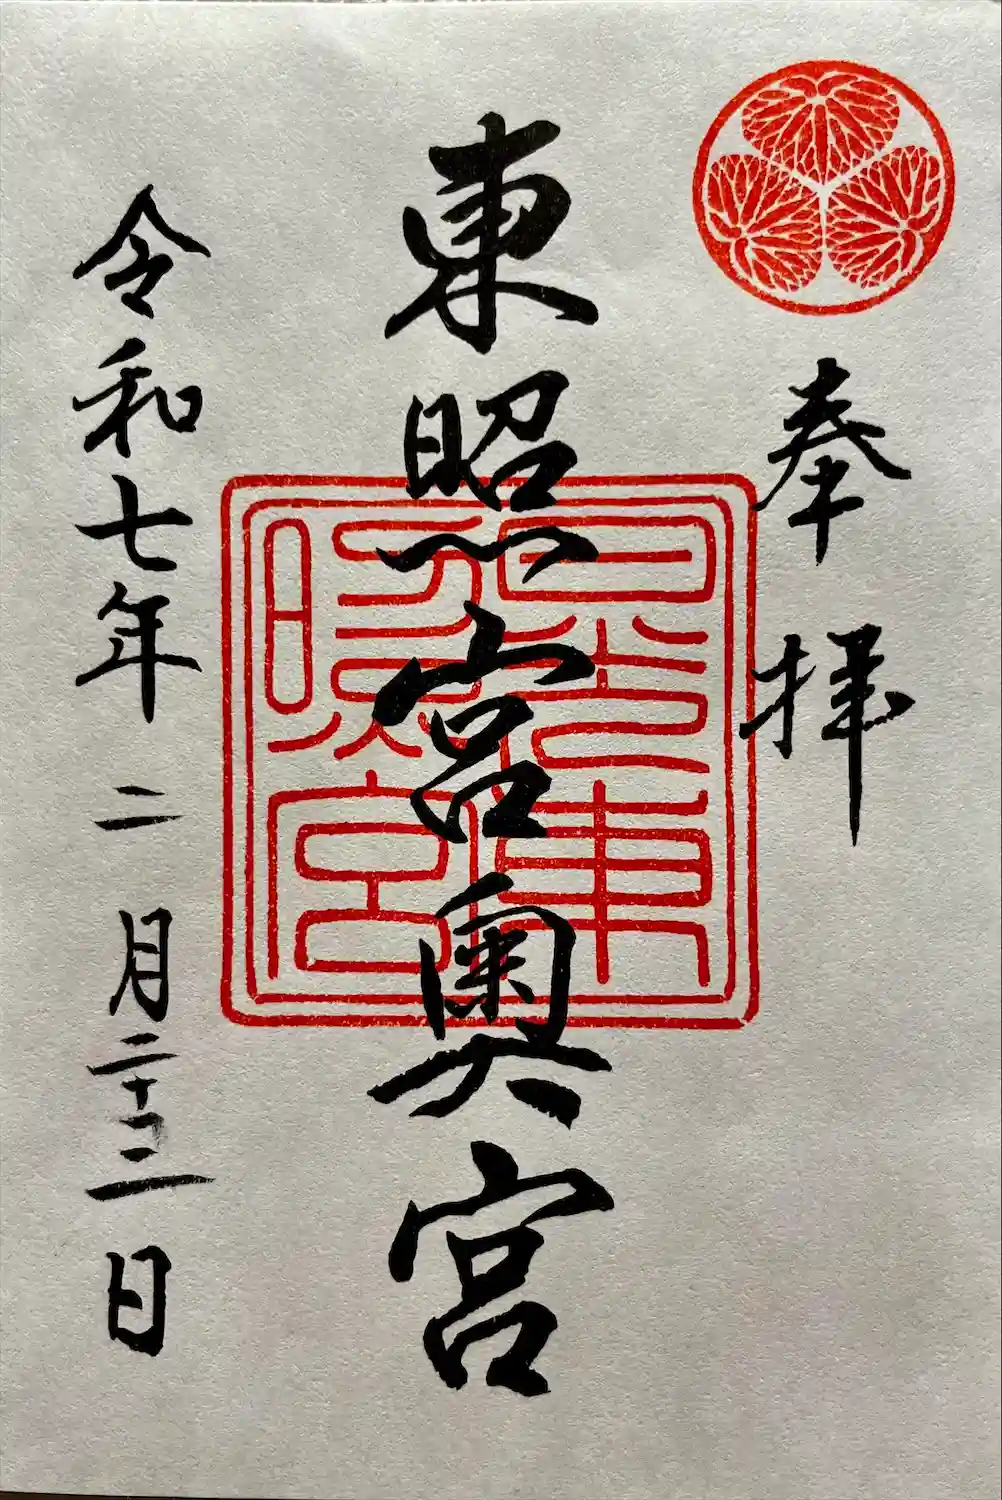 奉拝
東照宮奥宮
令和七年二月二十三日
日光東
照宮